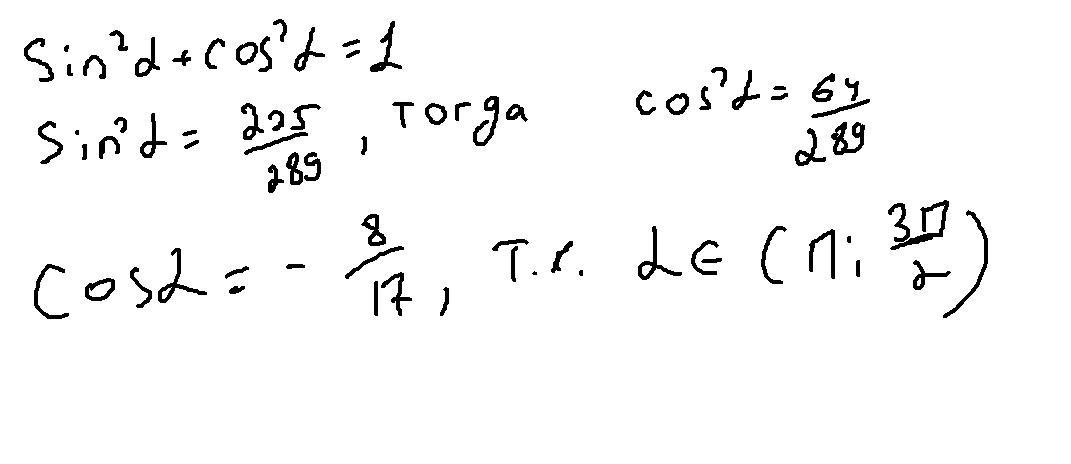 sin²α + cos²α = 1
sin²α = 225/289, тогда cos²α = 64/289
cosα = - 8/17, т.к. α ∈ (π; 3π/2)